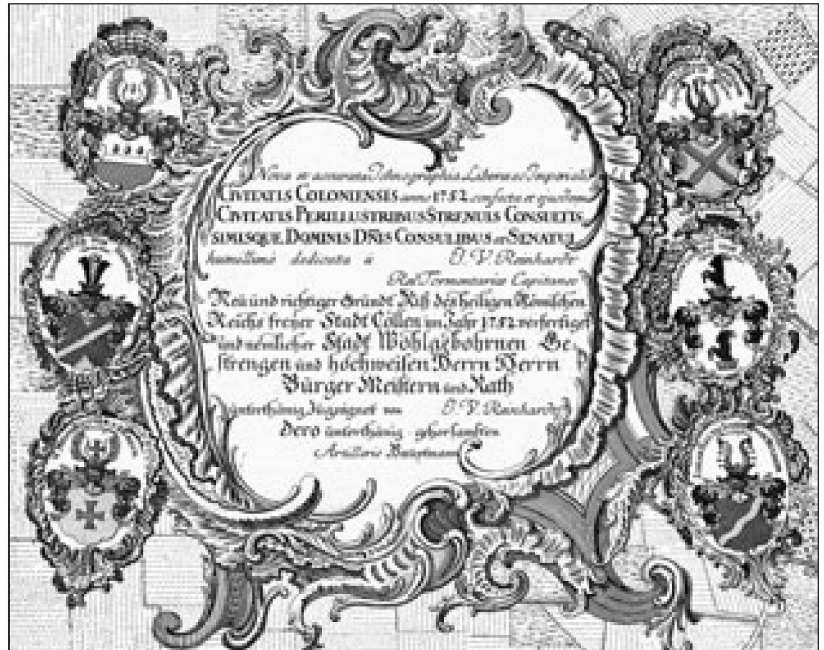 Nova et accurata Ichnographia Liberae ac Imperialis
CIVITATIS COLONIENSIS anno 1752 confecta et ejusdem
CIVITATIS PERILLUSTRIBUS STRENUIS CONSULTIS
SIMISQUE DOMINIS DNIS CONSULIBUS et SENATUI
humillimè dedicata à J. V. Reinhardt
Rei Tormentariae Capitaneo
Neu und richtiger Grundt Riß des heiligen Römischen
Reichs freyer Stadt Cöllen im Jahr 1752 verfertiget
und nemlicher Stadt Wohlgebohrnen Ge
strengen und hochweisen Herrn Herrn
Bürger Meistern und Rath
unterthänig Zugeignet von J. V. Reinhardt
Dero unterthänig gehorsambsten
Artillerie Hauptmann